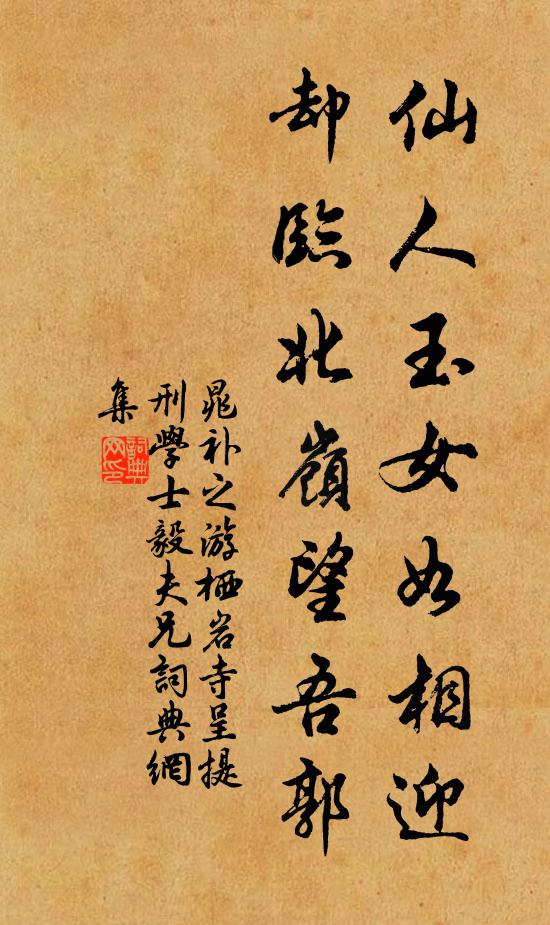 仙人玉女如相迎
却臨北嶺望吾郭
晁补之游栖岩寺呈提
刑學士毅夫兄詞典網
集
詞典
网印